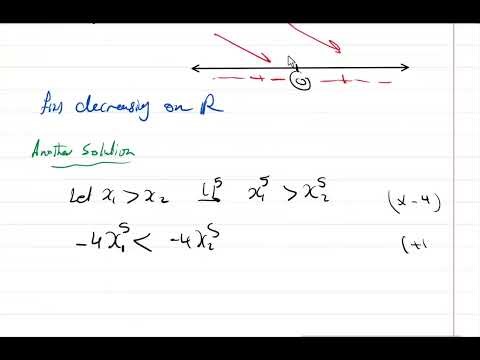 0
f(x) decreasing on R
Another Solution
Let x₁ > x₂ x₁⁵ > x₂⁵ (x - 4)
-4x₁⁵ < -4x₂⁵ (+1